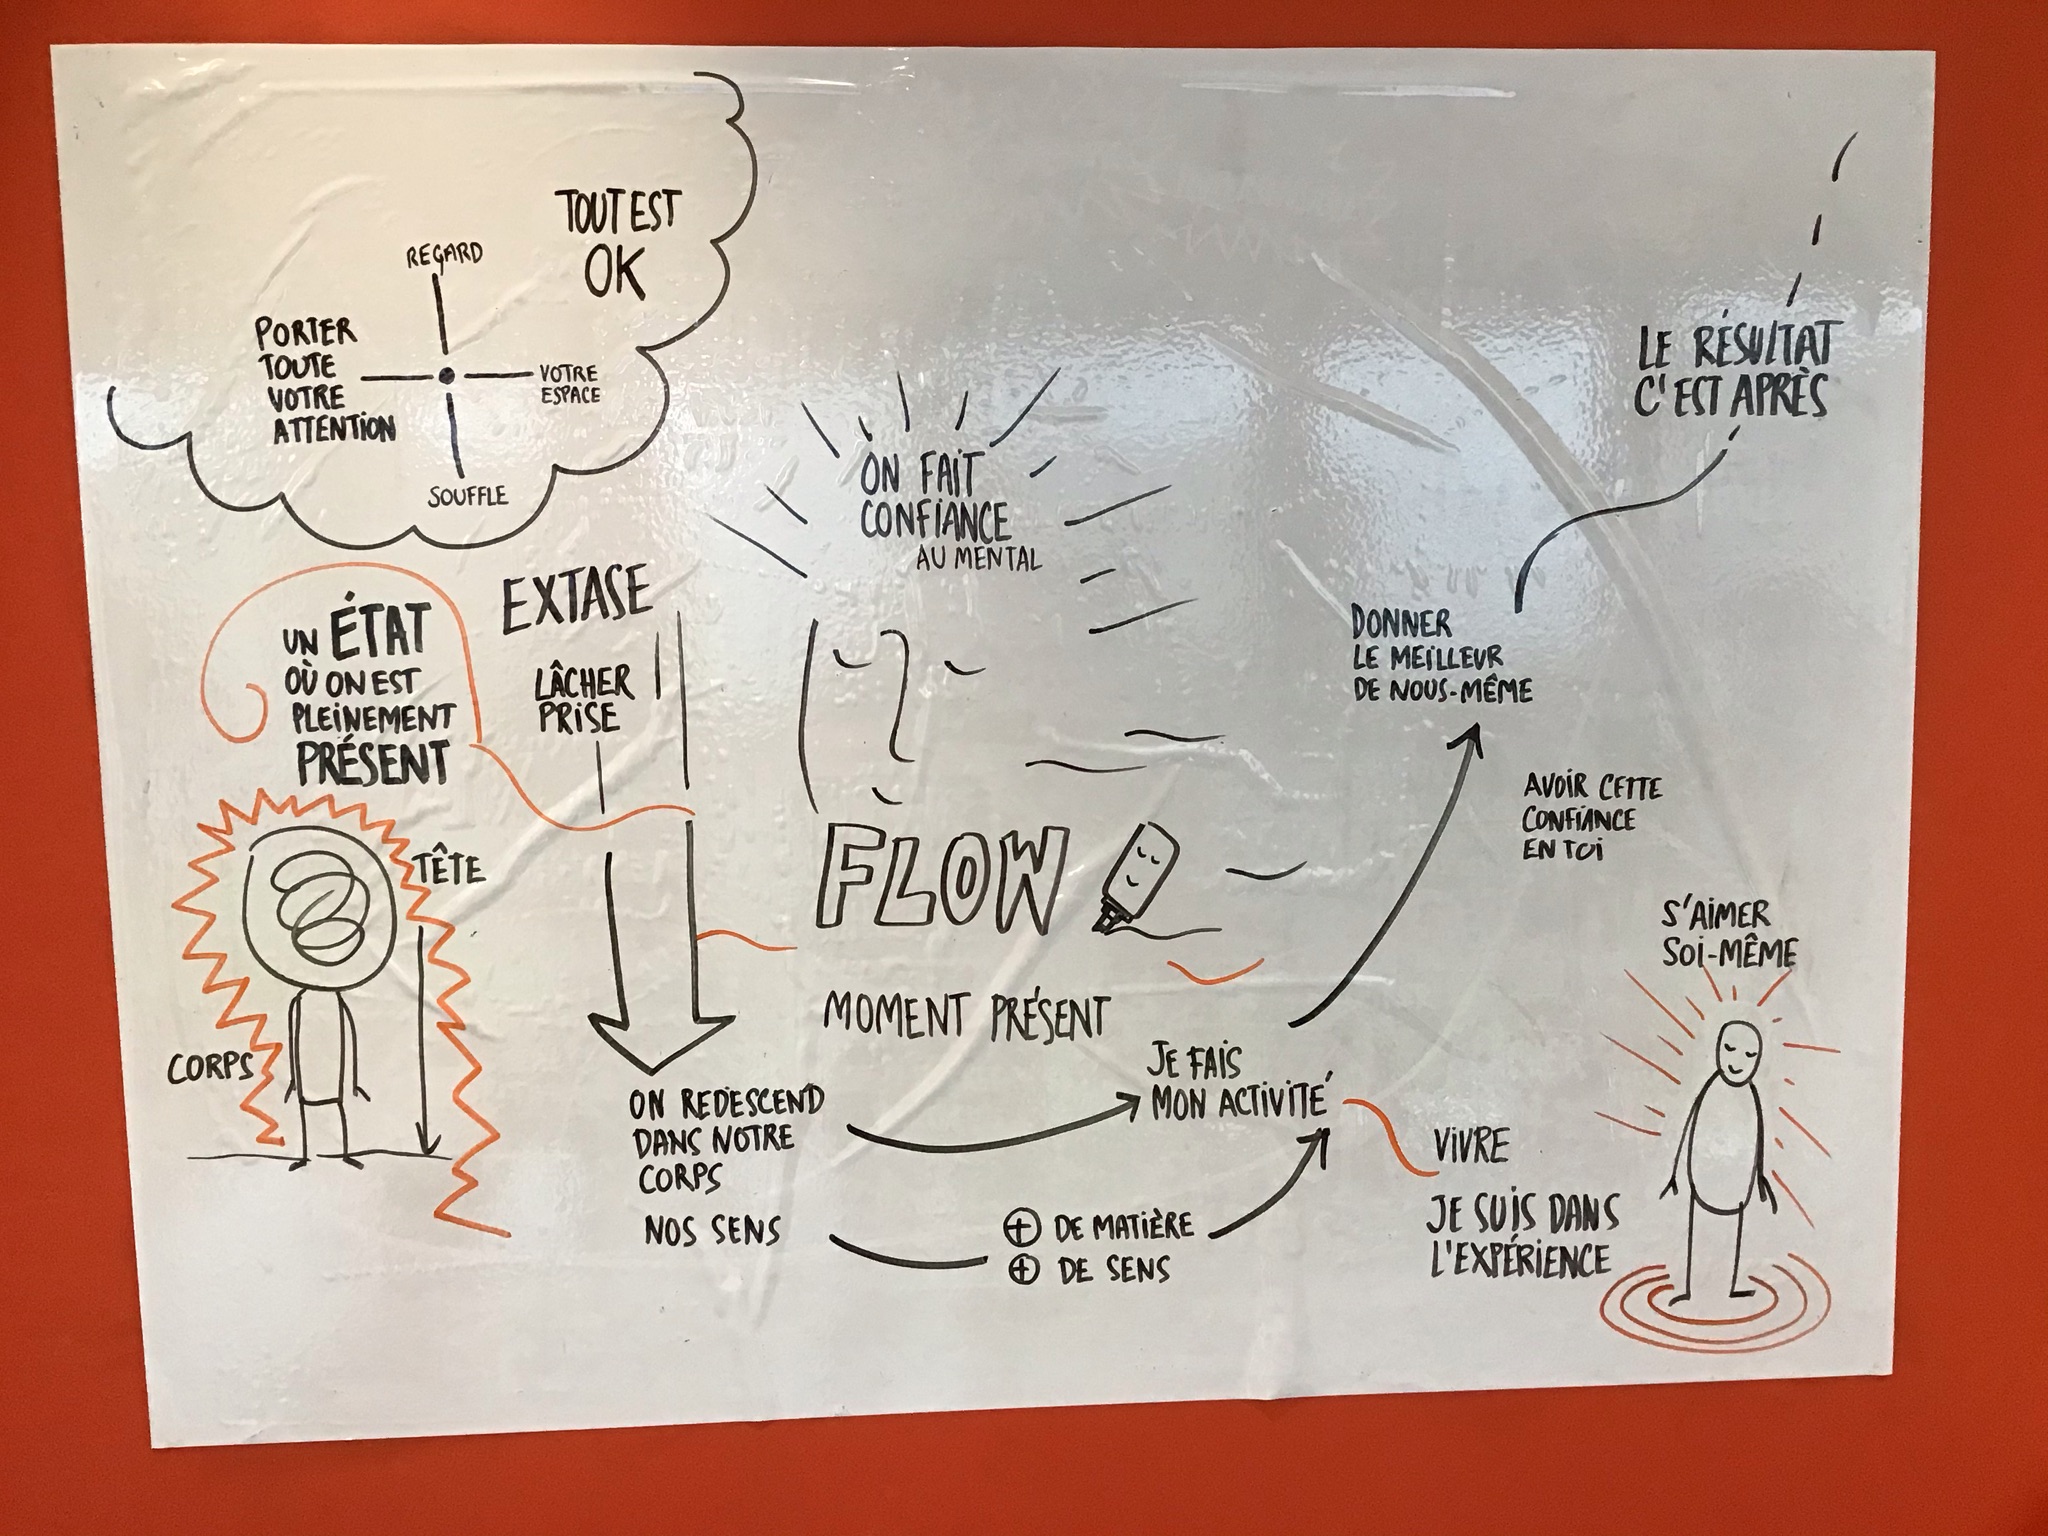 TOUT EST
OK
REGARD
PORTER
TOUTE
VOTRE
ATTENTION
VOTRE
ESPACE
SOUFFLE
UN ÉTAT
OÙ ON EST
PLEINEMENT
PRÉSENT
TÊTE
CORPS
EXTASE
LÂCHER
PRISE
ON FAIT
CONFIANCE
AU MENTAL
FLOW
MOMENT PRÉSENT
ON REDESCEND
DANS NOTRE
CORPS
NOS SENS
+ DE MATIÈRE
+ DE SENS
JE FAIS
MON ACTIVITÉ
VIVRE
JE SUIS DANS
L'EXPÉRIENCE
DONNER
LE MEILLEUR
DE NOUS-MÊME
LE RÉSULTAT
C'EST APRÈS
AVOIR CETTE
CONFIANCE
EN TOI
S'AIMER
SOI-MÊME